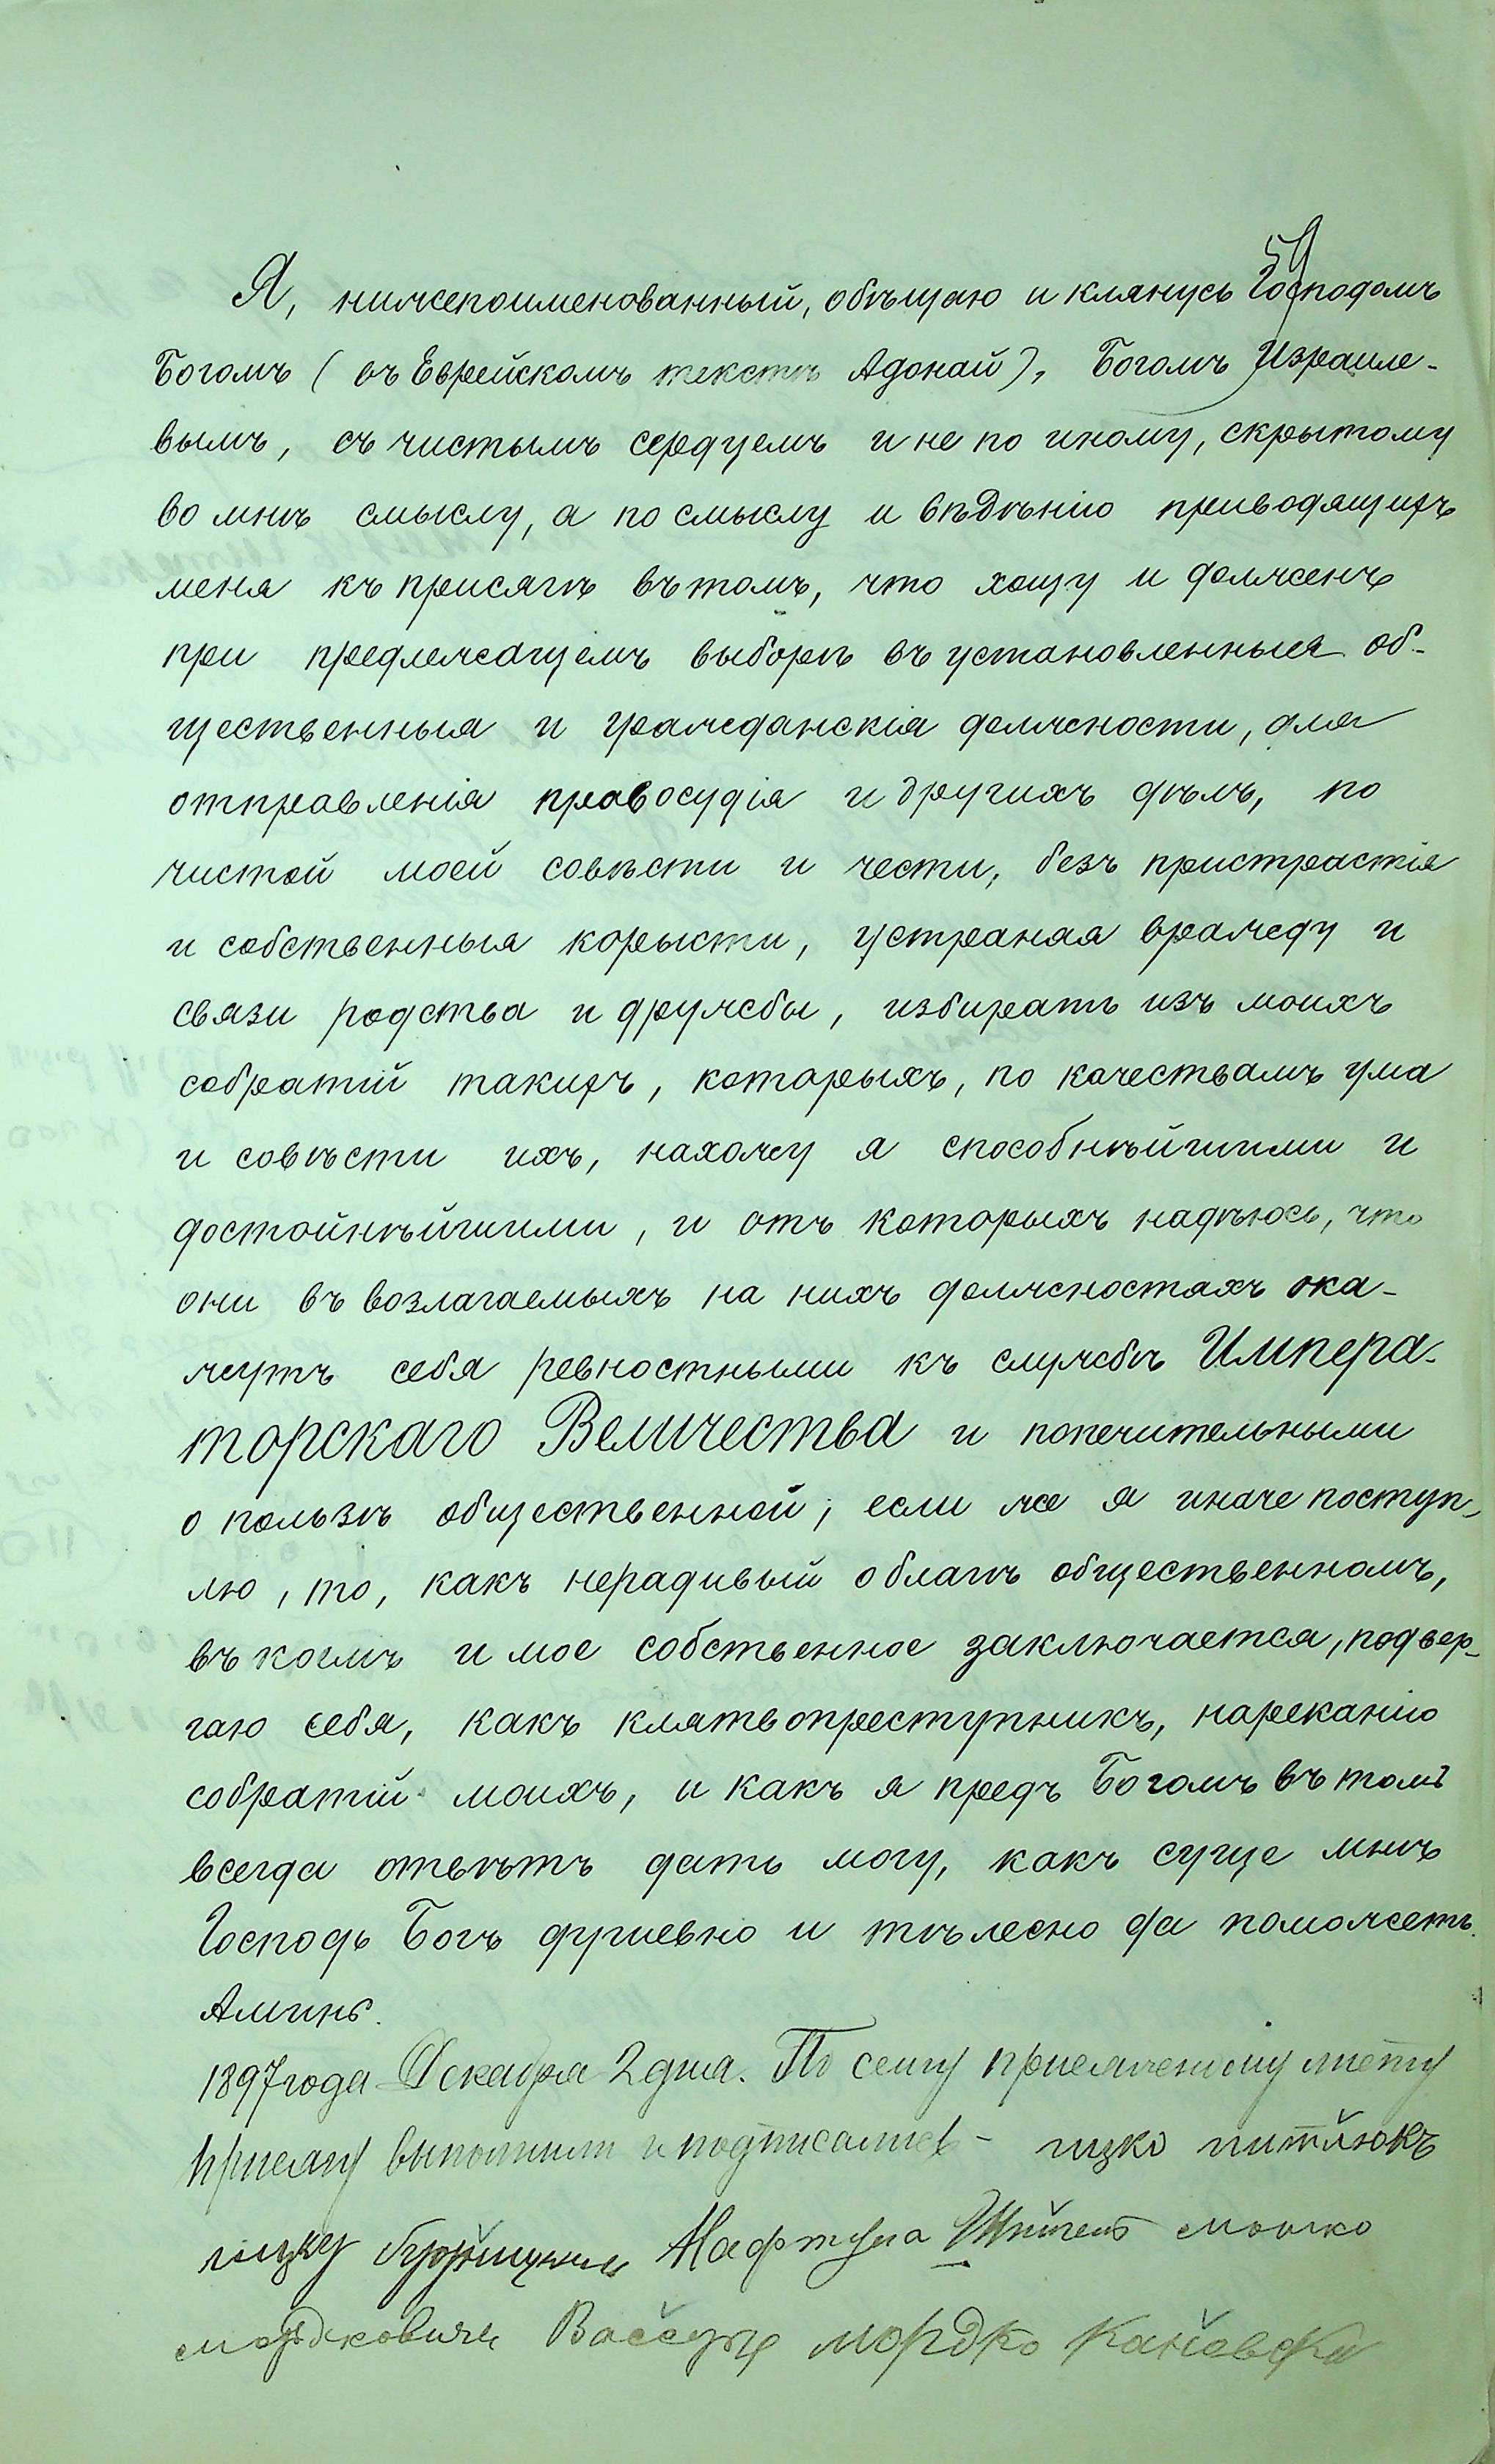 59
Я, нижепоименованный, обѣщаю и клянусь Господомъ
Богомъ (въ Еврейскомъ текстѣ Адонай), Богомъ Израиле-
вымъ, съ чистымъ сердцемъ и не по иному, скрытому
во мнѣ смыслу, а по смыслу и вѣдѣнію приводящихъ
меня къ присягѣ въ томъ, что хощу и долженъ
при предлежащемъ выборѣ въ установленныя об-
щественныя и гражданскія должности, для
отправленія правосудія и другихъ дѣлъ, по
чистой моей совѣсти и чести, безъ пристрастія
и собственныя корысти, устраняя вражду и
связи родства и дружбы, избирать изъ моихъ
собратій такихъ, которыхъ, по качествамъ ума
и совѣсти ихъ, нахожу я способнѣйшими и
достойнѣйшими, и отъ которыхъ надѣюсь, что
они въ возлагаемыхъ на нихъ должностяхъ ока-
жутъ себя ревностными къ службѣ Импера-
торскаго Величества и попечительными
о пользѣ общественной; если же я иначе поступ-
лю, то, какъ нерадивый о благѣ общественномъ,
въ коемъ и мое собственное заключается, подвер-
гаю себя, какъ клятвопреступникъ, нареканію
собратій моихъ, и какъ я предъ Богомъ въ томъ
всегда отвѣтъ дать могу, какъ суще мнѣ
Господь Богъ душевно и тѣлесно да поможетъ.
Аминь.
1897 года Декабря 2 дня. По сему присяжному листу
присягу выполнили и подписались -
Нафтула мошко
мордковичъ мордко